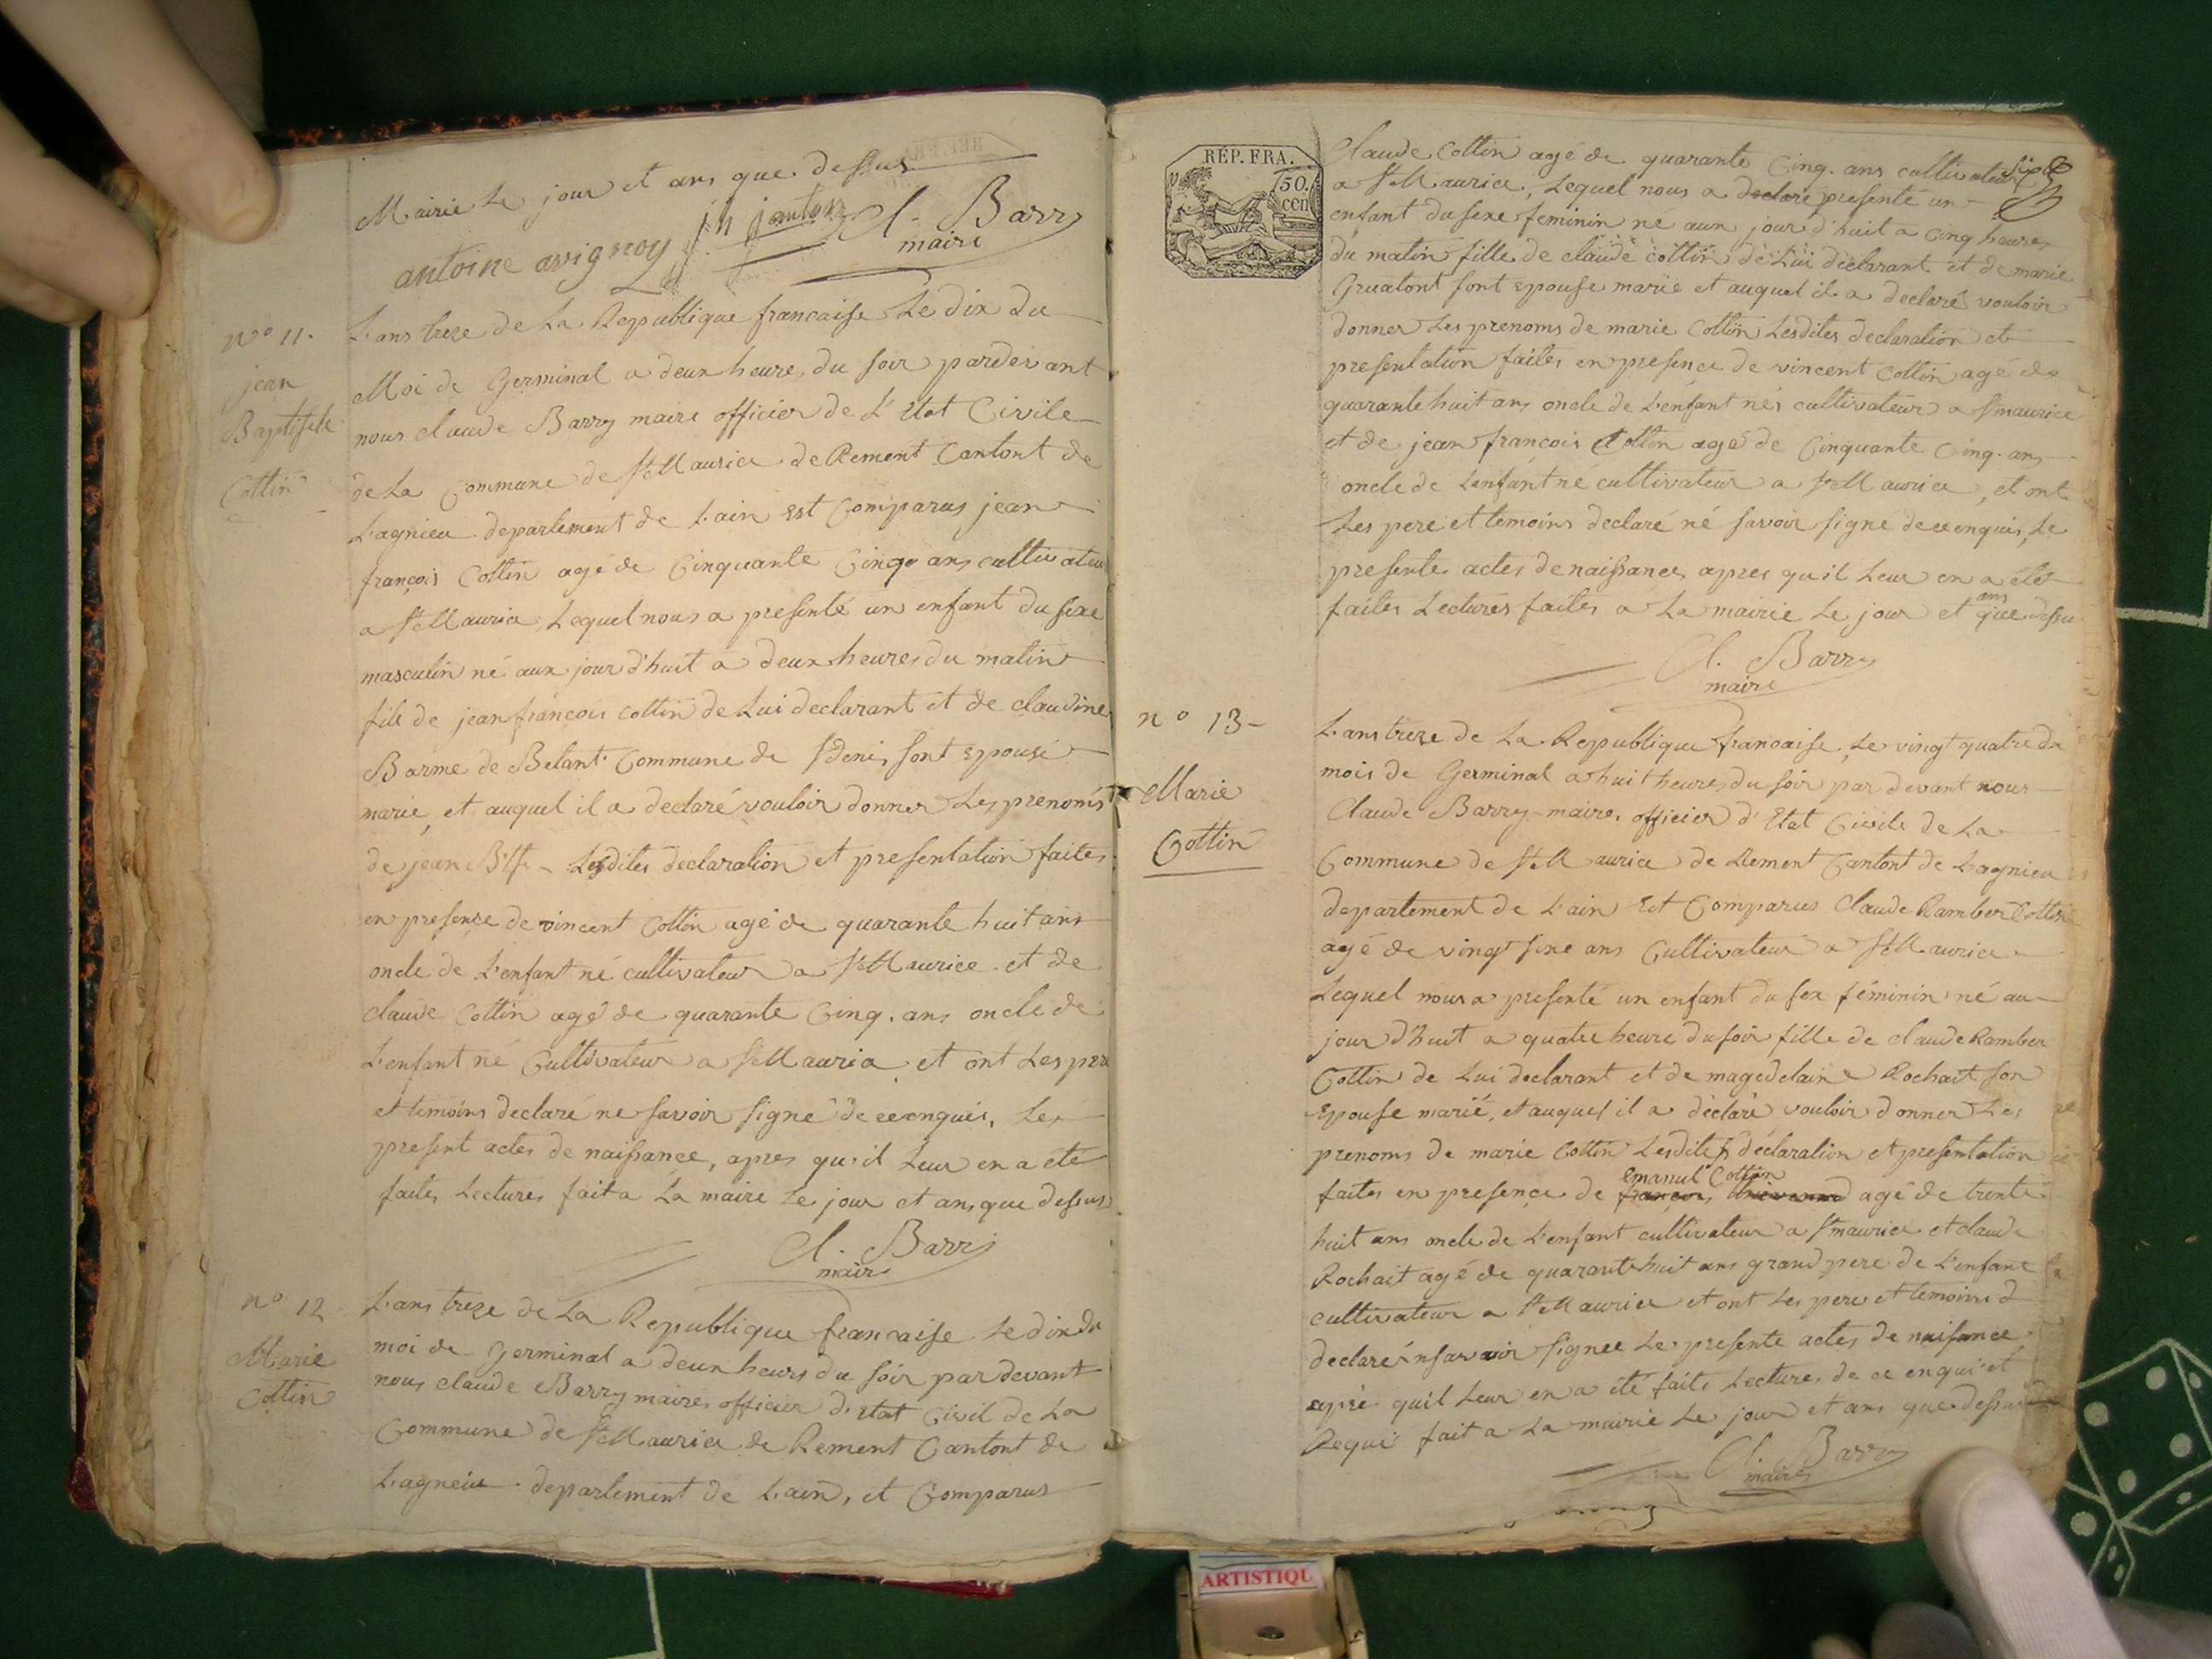 Mairie Le jour et ans que dessus
antoine avignoy jh jantou Cl. Barry
maire
nº 11.
jean
Baptiste
Cottin
L'ans treze de La Republique francaise Le dix du
Moi de Germinal a deux heure, du soir pardevant
nous claude Barry maire officier de L'Etat Civile
de La Commune de St Maurice de Rement Cantont de
Lagnieu departement de L'ain Est Comparus jean
françois Cottin agé de Cinquante Cinq ans cultivateur
a St Maurice, Lequel nous a presenté un enfant du sexe
masculin né aux jour d'huit a deux heures du matin
fils de jean françois cottin de Lui declarant et de claudine
Barme de Belant Commune de St denis sont Epouse
marie, et auquel il a declaré vouloir donner Les prenoms
de jean Btte Lesdites declaration et presentation faites
en presence de vincent Cottin agé de quarante huit ans
oncle de L'enfant né cultivateur a St Maurice et de
claude Cottin agé de quarante Cinq. ans oncle de
L'enfant né Cultivateur a St Maurice et ont Les pere
et temoins declaré ne savoir signé de ce enquis, Le
present actes de naissance, apres qu'il Leur en a eté
faites Lectures fait a La maire Le jour et ans que dessus
Cl. Barry
maire
nº 12
Marie
Cottin
L'ans treze de La Republique francaise Le dix du
moi de Germinal a deux heurs du soir par devant
nous claude Barry maire officier d'Etat Civil de La
Commune de St Maurice de Rement Cantont de
Lagneiu departement de L'ain, et Comparus
RÉP. FRA.
50.
cen
Claude Cottin agé de quarante Cinq. ans cultivateur
a St Maurice, Lequel nous a declaré presenté un
enfant du sexe feminin né aux jour d'huit a cinq heures
du matin fille de claude cottin de Lui declarant et de marie
Gruatont sont epouse marie et auquel il a declaré vouloir
donner Les prenoms de marie Cottin Lesdites declaration et
presentation faites en presence de vincent Cottin agé de
quarante huit ans oncle de L'enfant nés cultivateur a St maurice
et de jean françois Cottin agé de Cinquante Cinq. ans
oncle de L'enfant né cultivateur a St Maurice, et ont
Les pere et temoins declaré né savoir signé de ce enquis, Le
presente actes de naissance apres qu'il Leur en a été
faites Lectures faites a La mairie Le jour et ans que dessu
Cl. Barry
maire
nº 13
Marie
Cottin
L'ans treze de La Republique francaise, Le vingt quatre du
mois de Germinal a huit heures du soir par devant nous
Claude Barry maire, officier d'Etat Civile de La
Commune de St Maurice de Rement Cantont de Lagnieu
departement de L'ain Est Comparus Claude Ramber Cottin
agé de vingt sixe ans Cultivateur a St Maurice
Lequel nous a presenté un enfant du sex féminin né au
jour d'huit a quatre heure du soir fille de claude Ramber
Cottin de Lui declarant et de magedelaine Rochait son
Epouse marié, et auquel il a déclaré vouloir donner Les
prenoms de marie Cottin Lesdites déclaration et presentation
Emanuel Cottin
faites en presence de françois agé de trente
huit ans oncle de L'enfant cultivateur a St maurice et claude
Rochait agé de quarante huit ans grand pere de L'enfant
cultivateur a St Maurice et ont Les pere et temoins
declaré nsavoir signee Le presente actes de naisance
apres qu'il Leur en a été faits Lectures de ce enqui et
Requi fait a La mairie Le jour et ans que dessus
Cl. Barry
maire
ARTISTIQU